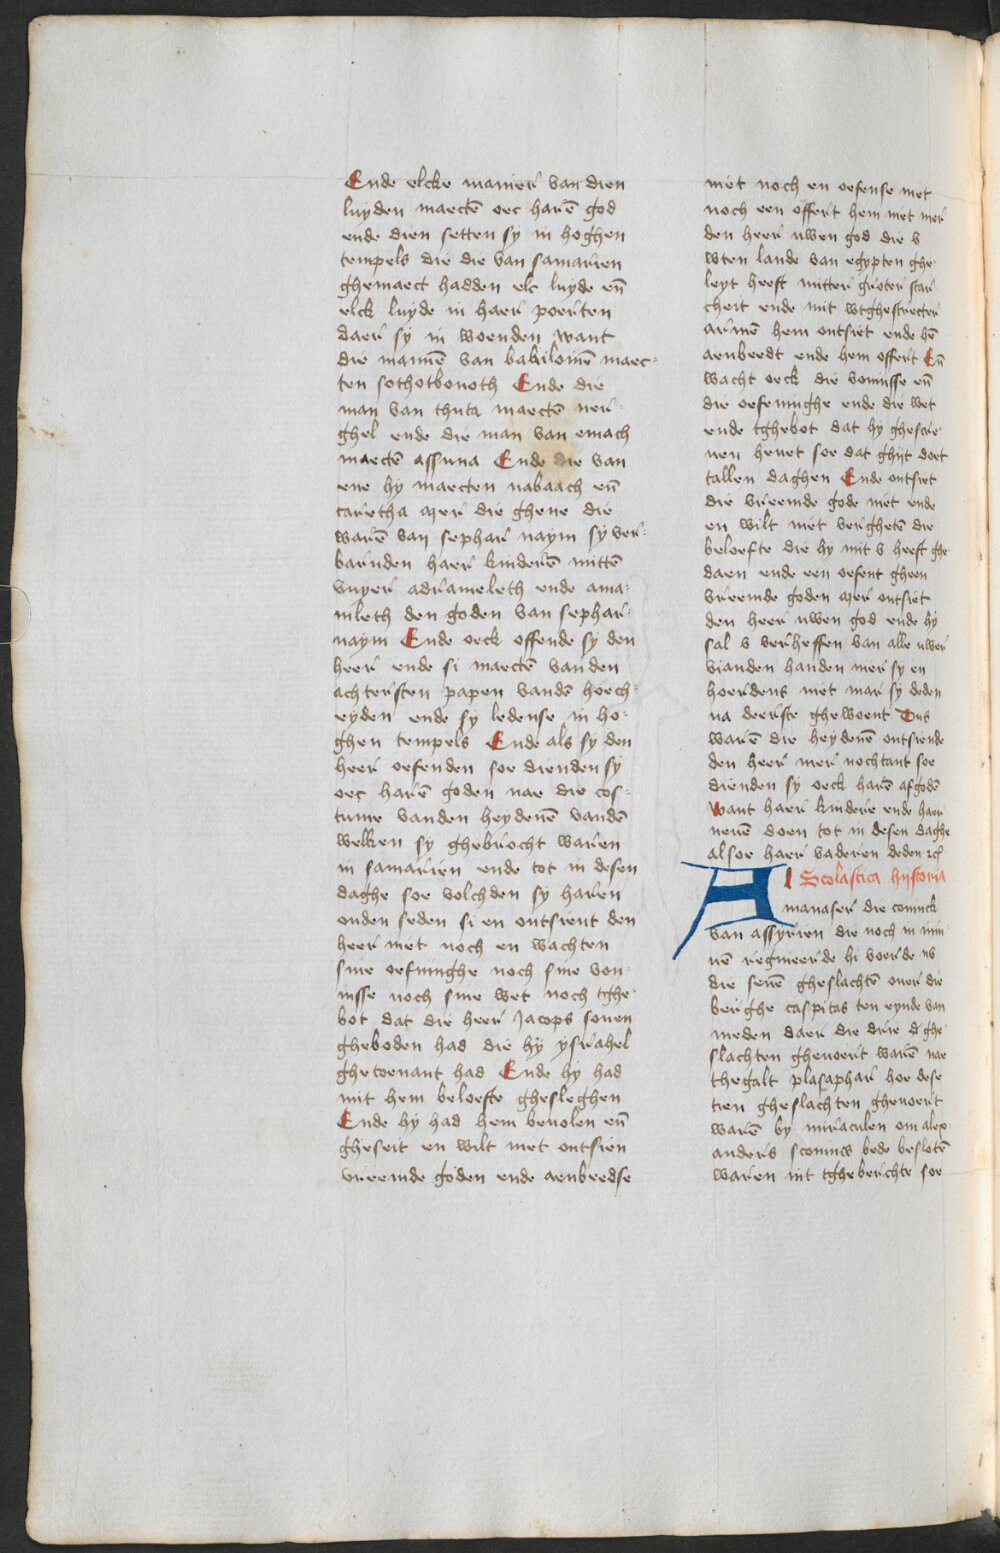 Ende elcke manier van dien
luyden maectē oec harē god
ende dien setten sy in hoghen
tempels die die van samarien
ghemaect hadden elc luyde eñ
elck luyde in haer poerten
daer sy in woenden want
die mannē van babiloniē maec-
ten sothotbonoth Ende die
man van thuta maectē ner-
ghel ende die man van emach
maectē assuna Ende die van
eue hy maecten nabaach eñ
taretha mer die ghene die
warē van sephar naym sy ver-
barnden haer kinderē mittē
vuyer adrameleth ende ama-
mleth den goden van sephar-
naym Ende oeck offende sy den
heer ende si maectē van den
achtersten papen vandē hoech-
eyden ende sy ledense in ho-
ghen tempels Ende als sy den
heer oefenden soe dienden sy
oec harē goden nae die cos-
tume vanden heydenē vandē
welken sy ghebrocht waren
in samarien ende tot in desen
daghe soe volchden sy haren
ouden seden si en ontsient den
heer niet noch en wachten
sine oefninghe noch sine von-
nisse noch sine wet noch tghe-
bot dat die heer Jacops sonen
gheboden had die hy ysrahel
ghetoenant had Ende hy had
mit hem beloefte ghesleghen
Ende hy had hem beuolen eñ
gheseit en wilt niet ontsien
vreemde goden ende aenbeedse
niet noch en oefense niet
noch een offert hem niet mer
den heer uwen god die v
wten lande van egypten ghe-
leyt heeft mitter groter star
cheit ende mit wtghestrecter
armē hem ontsiet ende hē
aenbeedt ende hem offert Eñ
wacht oeck die vonnisse eñ
die oefeninghe ende die wet
ende tghebot dat hy ghescre-
uen heuet soe dat ghijt doet
tallen daghen Ende ontsiet
die vreemde gode niet ende
en wilt niet verghetē die
beloefte die hy mit v heeft ghe-
daen ende een oefent gheen
vreemde goden mer ontsiet
den heer uwen god ende hy
sal v verheffen van alle uwer
vianden handen mer sy en
hoerdens niet mar sy deden
na deerste ghewoent Dus
warē die heydenē ontsiende
den heer mer nochtant soe
dienden sy oeck harē afgodē
want haer kindere ende haer
neuē doen tot in desen daghe
alsoe haer vaderen deden etc̃
Al Scolastica hystoria
manaser die coninck
van assyrien die noch in nini-
uē regnieerde hi voerde uv
die seuē gheslachtē ouer die
berghe caspitas ten eynde van
meden daer die drie d ghe-
slachten gheuoert warē nae
thegalt plasaphar hoe dese
tien gheslachten gheuoert
warē by miraculen om alex-
anders sconincs bede beslotē
waren int tgheberchte soe